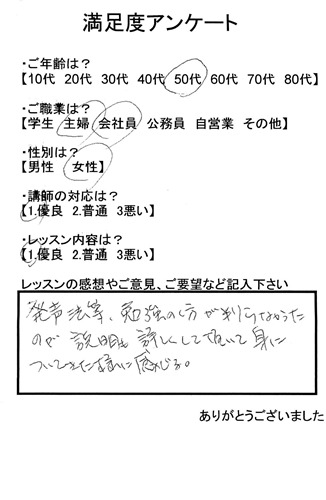 満足度アンケート
・ご年齢は？
【10代 20代 30代 40代 50代 60代 70代 80代】
・ご職業は？
【学生 主婦 会社員 公務員 自営業 その他】
・性別は？
【男性 女性】
・講師の対応は？
【1.優良 2.普通 3悪い】
・レッスン内容は？
【1.優良 2.普通 3悪い】
レッスンの感想やご意見、ご要望など記入下さい
発声法等、勉強の仕方が判らなかった
ので説明も詳しくして頂いて身に
ついてきた様に感じる。
ありがとうございました